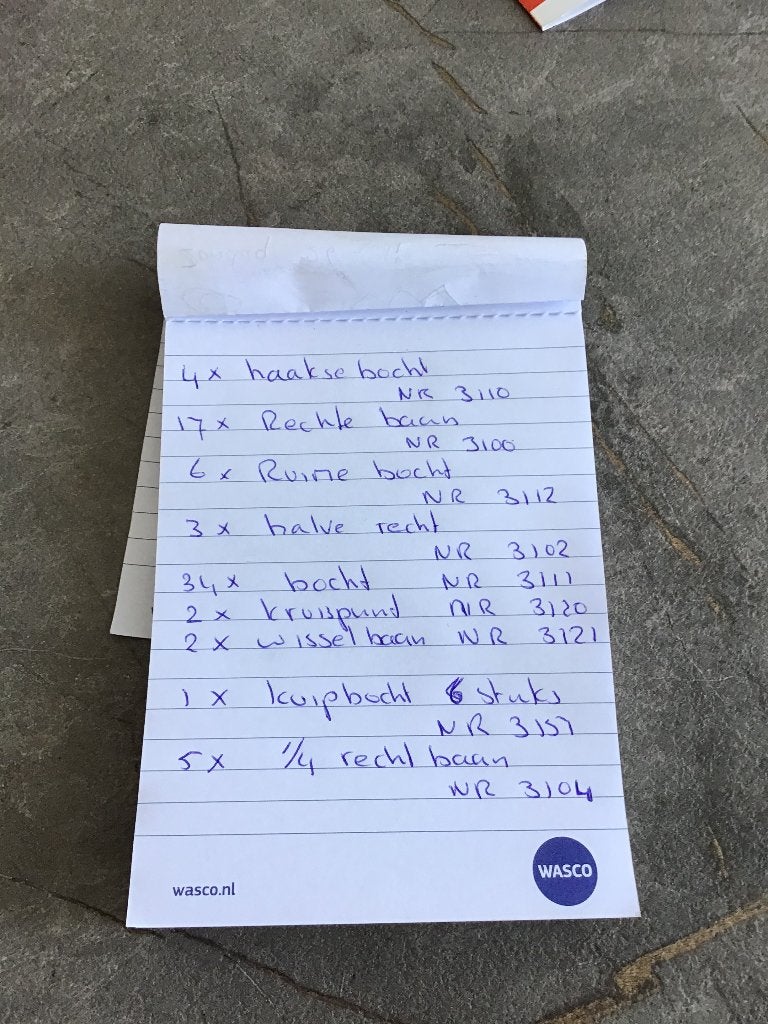 4 x haakse bocht
NR 3110
17 x Rechte baan
NR 3100
6 x Ruime bocht
NR 3112
3 x halve recht
NR 3102
34 x bocht NR 3111
2 x kruispunt NR 3120
2 x wisselbaan NR 3121
1 x kuipbocht 6 stuks
NR 3151
5 x 1/4 recht baan
NR 3104
wasco.nl
WASCO